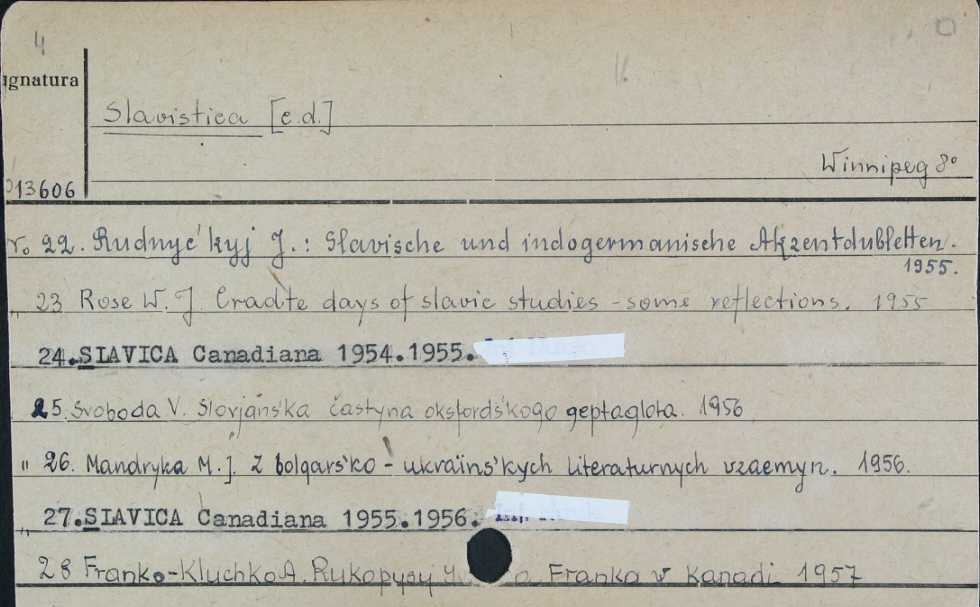 4
ignatura
Slavistica [e.d.]
Winnipeg 8°
13606
No 22. Rudnyc'kyj J.: Slavische und indogermanische Akzentdubletten.
1955.
" 23 Rose W. J. Cradle days of slavic studies - some reflections. 1955
24. SLAVICA Canadiana 1954.1955.
25. Svoboda V. Slovjans'ka častyna oksfords'kogo geptaglota. 1956
" 26. Mandryka M. J. Z bolgars'ko - ukraïns'kych literaturnych vzaemyn. 1956.
" 27. SLAVICA Canadiana 1955.1956.
28 Franko-Klychko A. Rukopysy Franka v Kanadi 1957